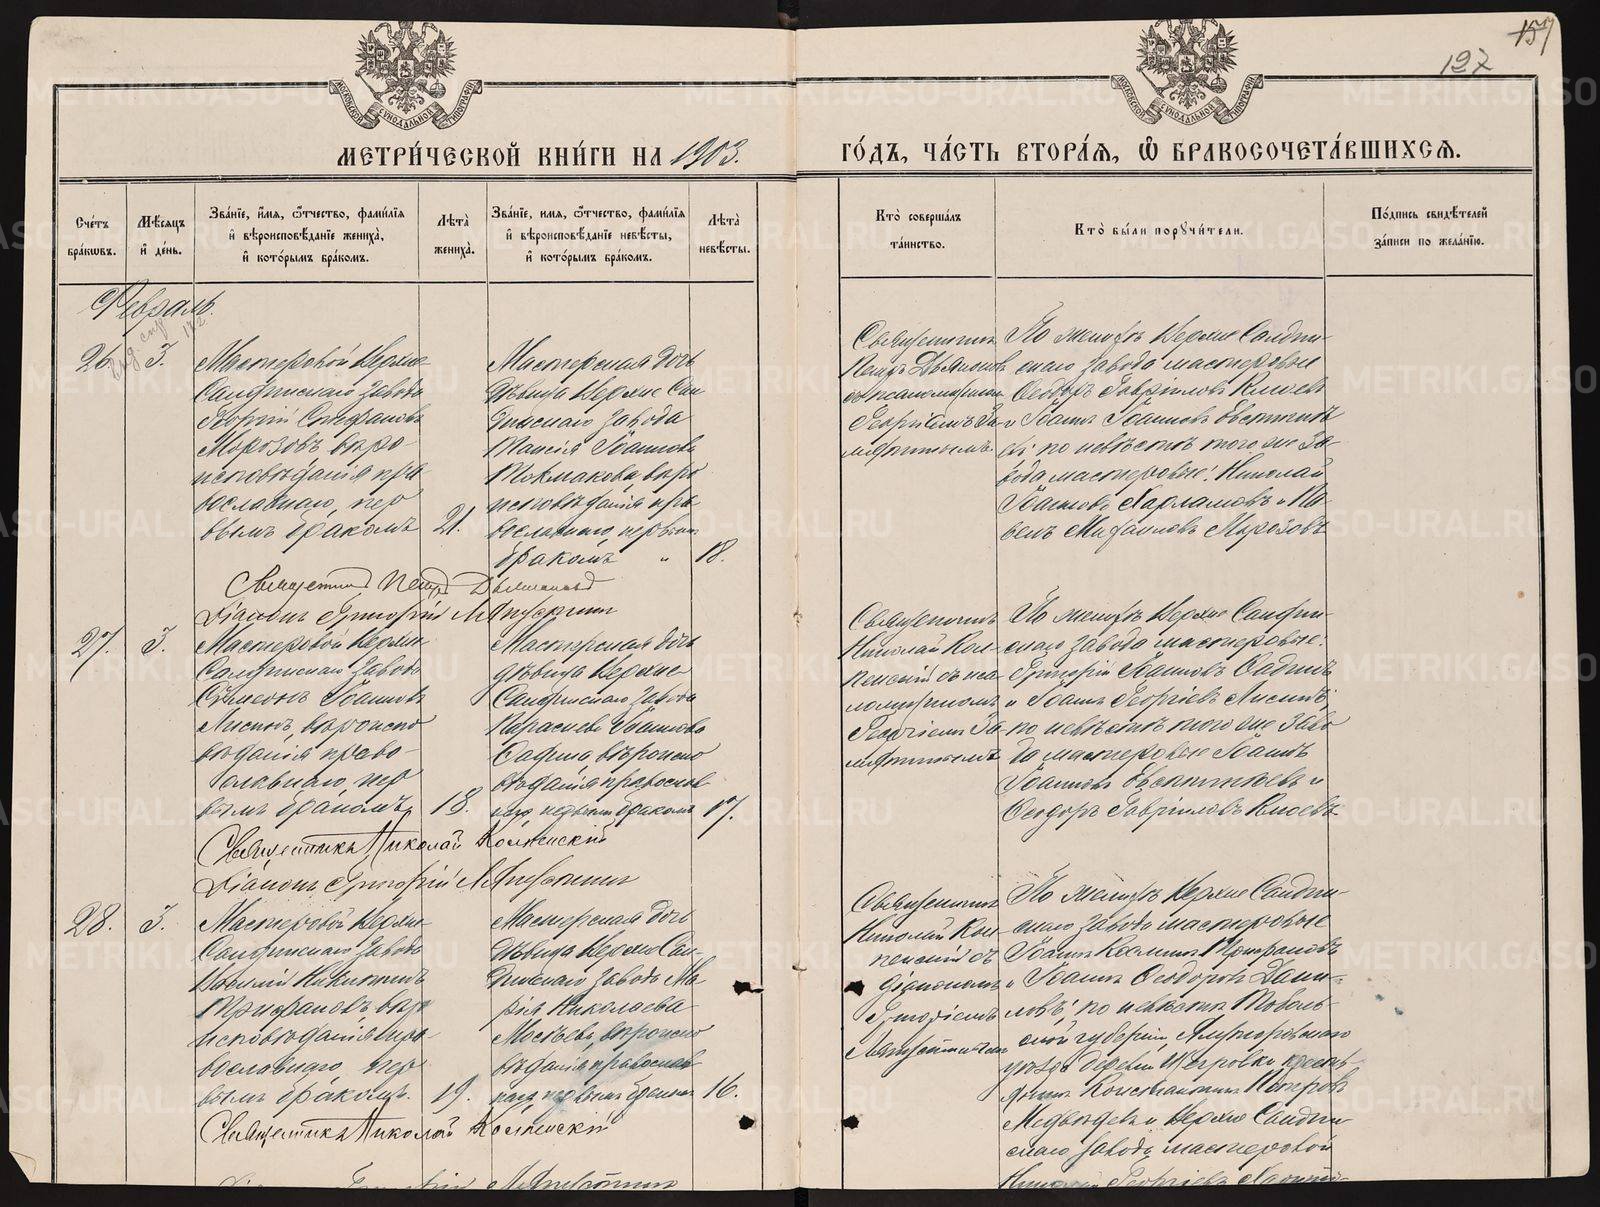 157
127
МОСКОВСКОЙ СѴНОДАЛЬНОЙ ТИПОГРАФІИ
МОСКОВСКОЙ СѴНОДАЛЬНОЙ ТИПОГРАФІИ
МЕТРИ́ЧЕСКОЙ КНИ́ГИ НА 1903.
ГО́ДЪ, ЧА́СТЬ ВТОРА́Я, Ѿ БРАКОСОЧЕТА́ВШИХСЯ.
Сче́тъ бра́кѡвъ.
Мѣ́сяцъ и҆ де́нь.
Зва́нїе, и҆́мя, ѻ҆́тчество, фамилі́я и҆ вѣроисповѣ́данїе жениха̀, и҆ кото́рымъ бра́комъ.
Лѣ́та̀ жениха̀.
Зва́нїе, имя, ѻ҆́тчество, фамилі́я и҆ вѣроисповѣ́данїе невѣ́сты, и҆ кото́рымъ бра́комъ.
Лѣ́та̀ невѣ́сты.
Кто̀ соверша́лъ та́инство.
Кто̀ бы́ли порꙋчи́тели.
По́дпись свидѣ́телей за́писи по жела́нїю.
Февраль.
26.
3.
Мастеровой Верхне-
Салдинскаго завода
Георгій Стефановъ
Морозовъ, вѣро-
исповѣданія пра-
вославнаго, пер-
вымъ бракомъ
21.
Мастерская дочь
дѣвица Верхне Сал-
динскаго завода
Таисія Іоаннова
Токмакова, вѣро-
исповѣданія пра-
вославнаго, первымъ
бракомъ "
18.
Священникъ
Петръ
съ псаломщикомъ
Георгіемъ
По женихѣ Верхне Салдин-
скаго завода мастеровые
Ѳеодоръ Гавріиловъ Князевъ
и Іоаннъ Іоанновъ Евстигнѣ-
евъ; по невѣстѣ того же за-
вода мастеровые: Николай
Іоанновъ Харламовъ и Па-
велъ Михаиловъ Морозовъ
Священникъ Петръ
Діаконъ Григорій
27.
3.
Мастеровой Верхне-
Салдинскаго завода
Сѵмеонъ Іоанновъ
вѣроиспо-
вѣданія право-
славнаго, пер-
вымъ бракомъ
18.
Мастерская дочь
дѣвица Верхне
Салдинскаго завода
Параскева Іоаннова
вѣроиспо-
вѣданія православ-
наго, первымъ бракомъ
17.
Священникъ
Николай
съ пса-
ломщикомъ
Георгіемъ
По женихѣ Верхне Салдин-
скаго завода мастеровые:
Григорій Іоанновъ
и Іоаннъ Георгіевъ
по невѣстѣ того же заво-
да мастеровые Іоаннъ
Іоанновъ Евстигнѣевъ и
Ѳеодоръ Гавріиловъ Князевъ
Священникъ Николай
Діаконъ Григорій
28.
3.
Мастеровой Верхне-
Салдинскаго завода
Василій Никитинъ
Трифановъ, вѣро-
исповѣданія пра-
вославнаго, пер-
вымъ бракомъ.
19.
Мастерская дочь
дѣвица Верхне Сал-
динскаго завода Ма-
рія Николаева
вѣроиспо-
вѣданія православ-
наго, первымъ бракомъ
16.
Священникъ
Николай
съ
діакономъ
Григоріемъ
По женихѣ Верхне Салдин-
скаго завода мастеровые
Іоаннъ Косминъ Трифановъ
и Іоаннъ Ѳеодоровъ Дани-
ловъ; по невѣстѣ Тоболь-
ской губерніи, Ялуторовскаго
уѣзда деревни кресть-
янинъ Константинъ Петровъ
Медвѣдевъ и Верхне Салдин-
скаго завода мастеровой
Николай Георгіевъ
Священникъ Николай
METRIKI.GASO-URAL.RU